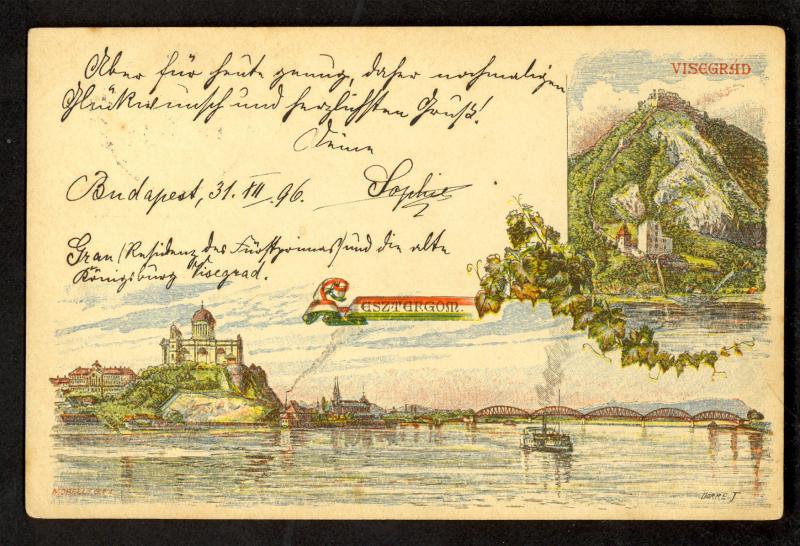 Aber für heute genug, daher nochmaligen
Glückwunsch und herzlichsten Gruß!
Deine
Budapest, 31. VII 96. Sophie
Gran (Residenz des Fürstprimas) und die alte
Königsburg Visegrad.
VISEGRÁD
ESZTERGOM.
MORELLI G.
DÖRRE. T